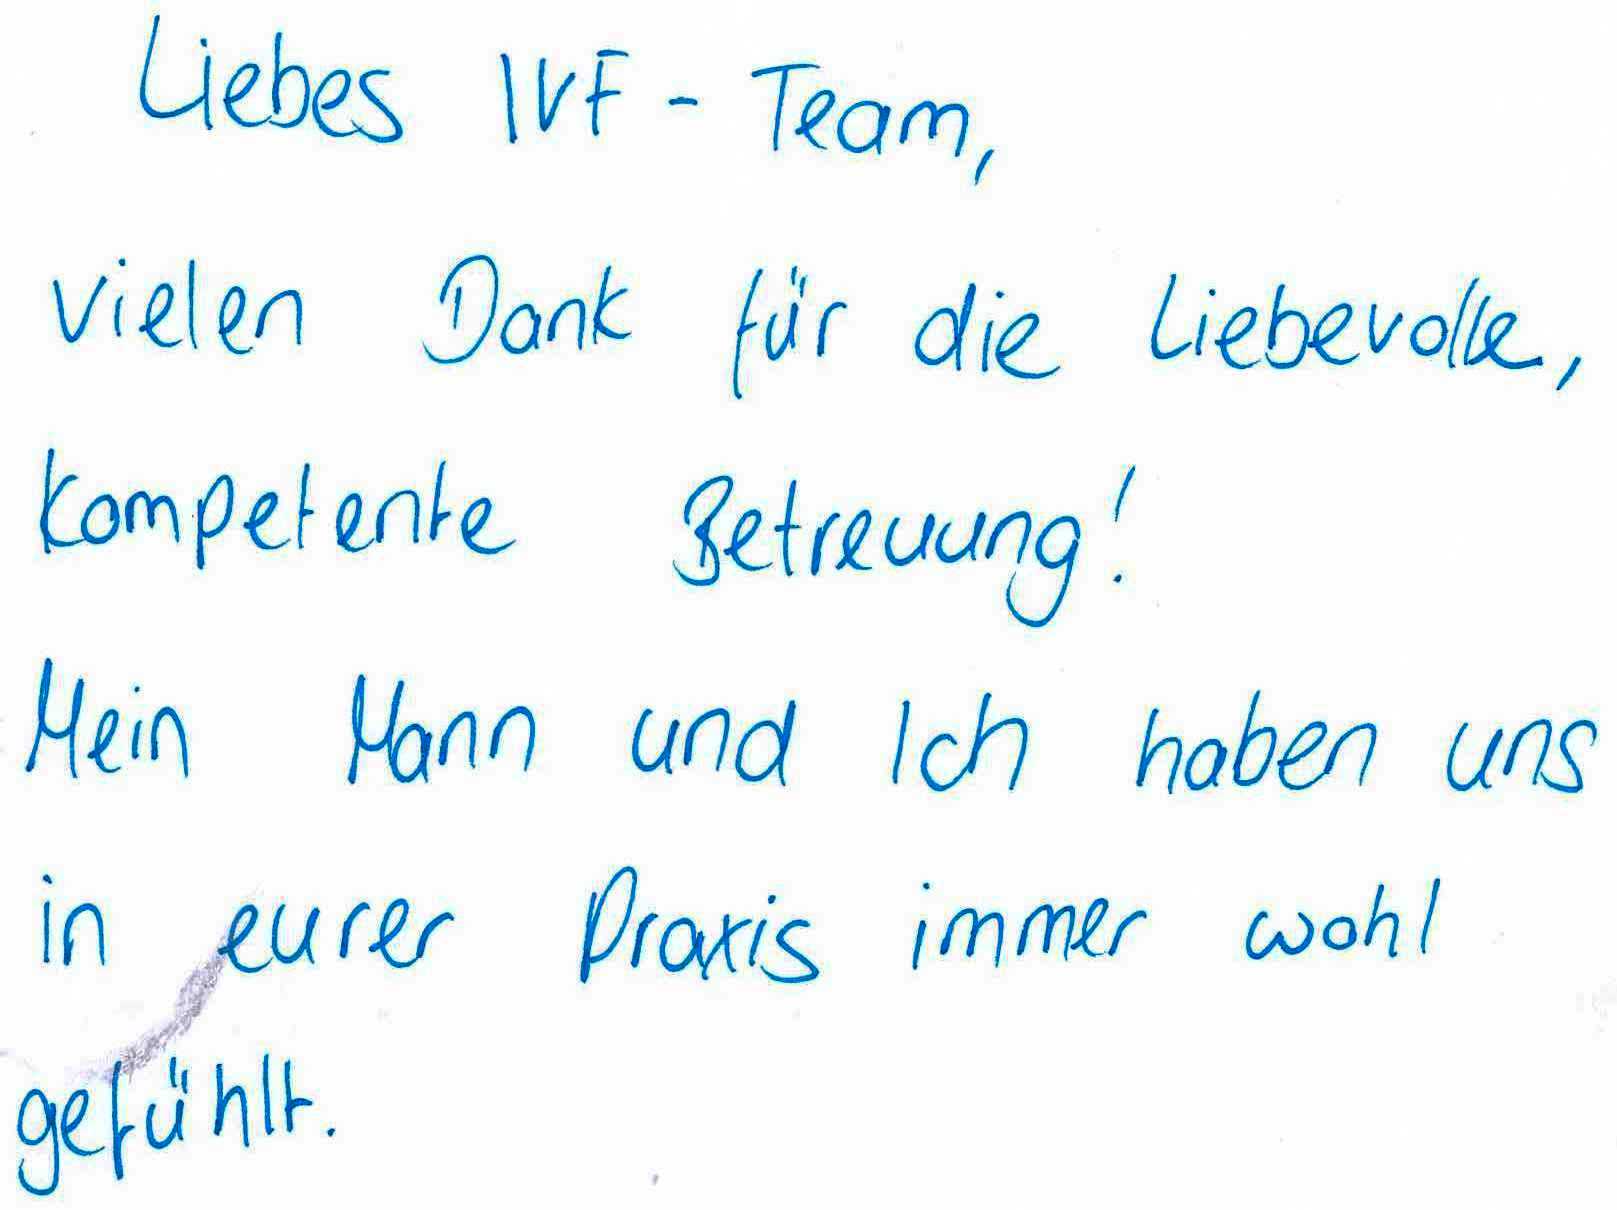 Liebes IVF - Team,
vielen Dank für die Liebevolle,
kompetente Betreuung!
Mein Mann und Ich haben uns
in eurer Praxis immer wohl
gefühlt.